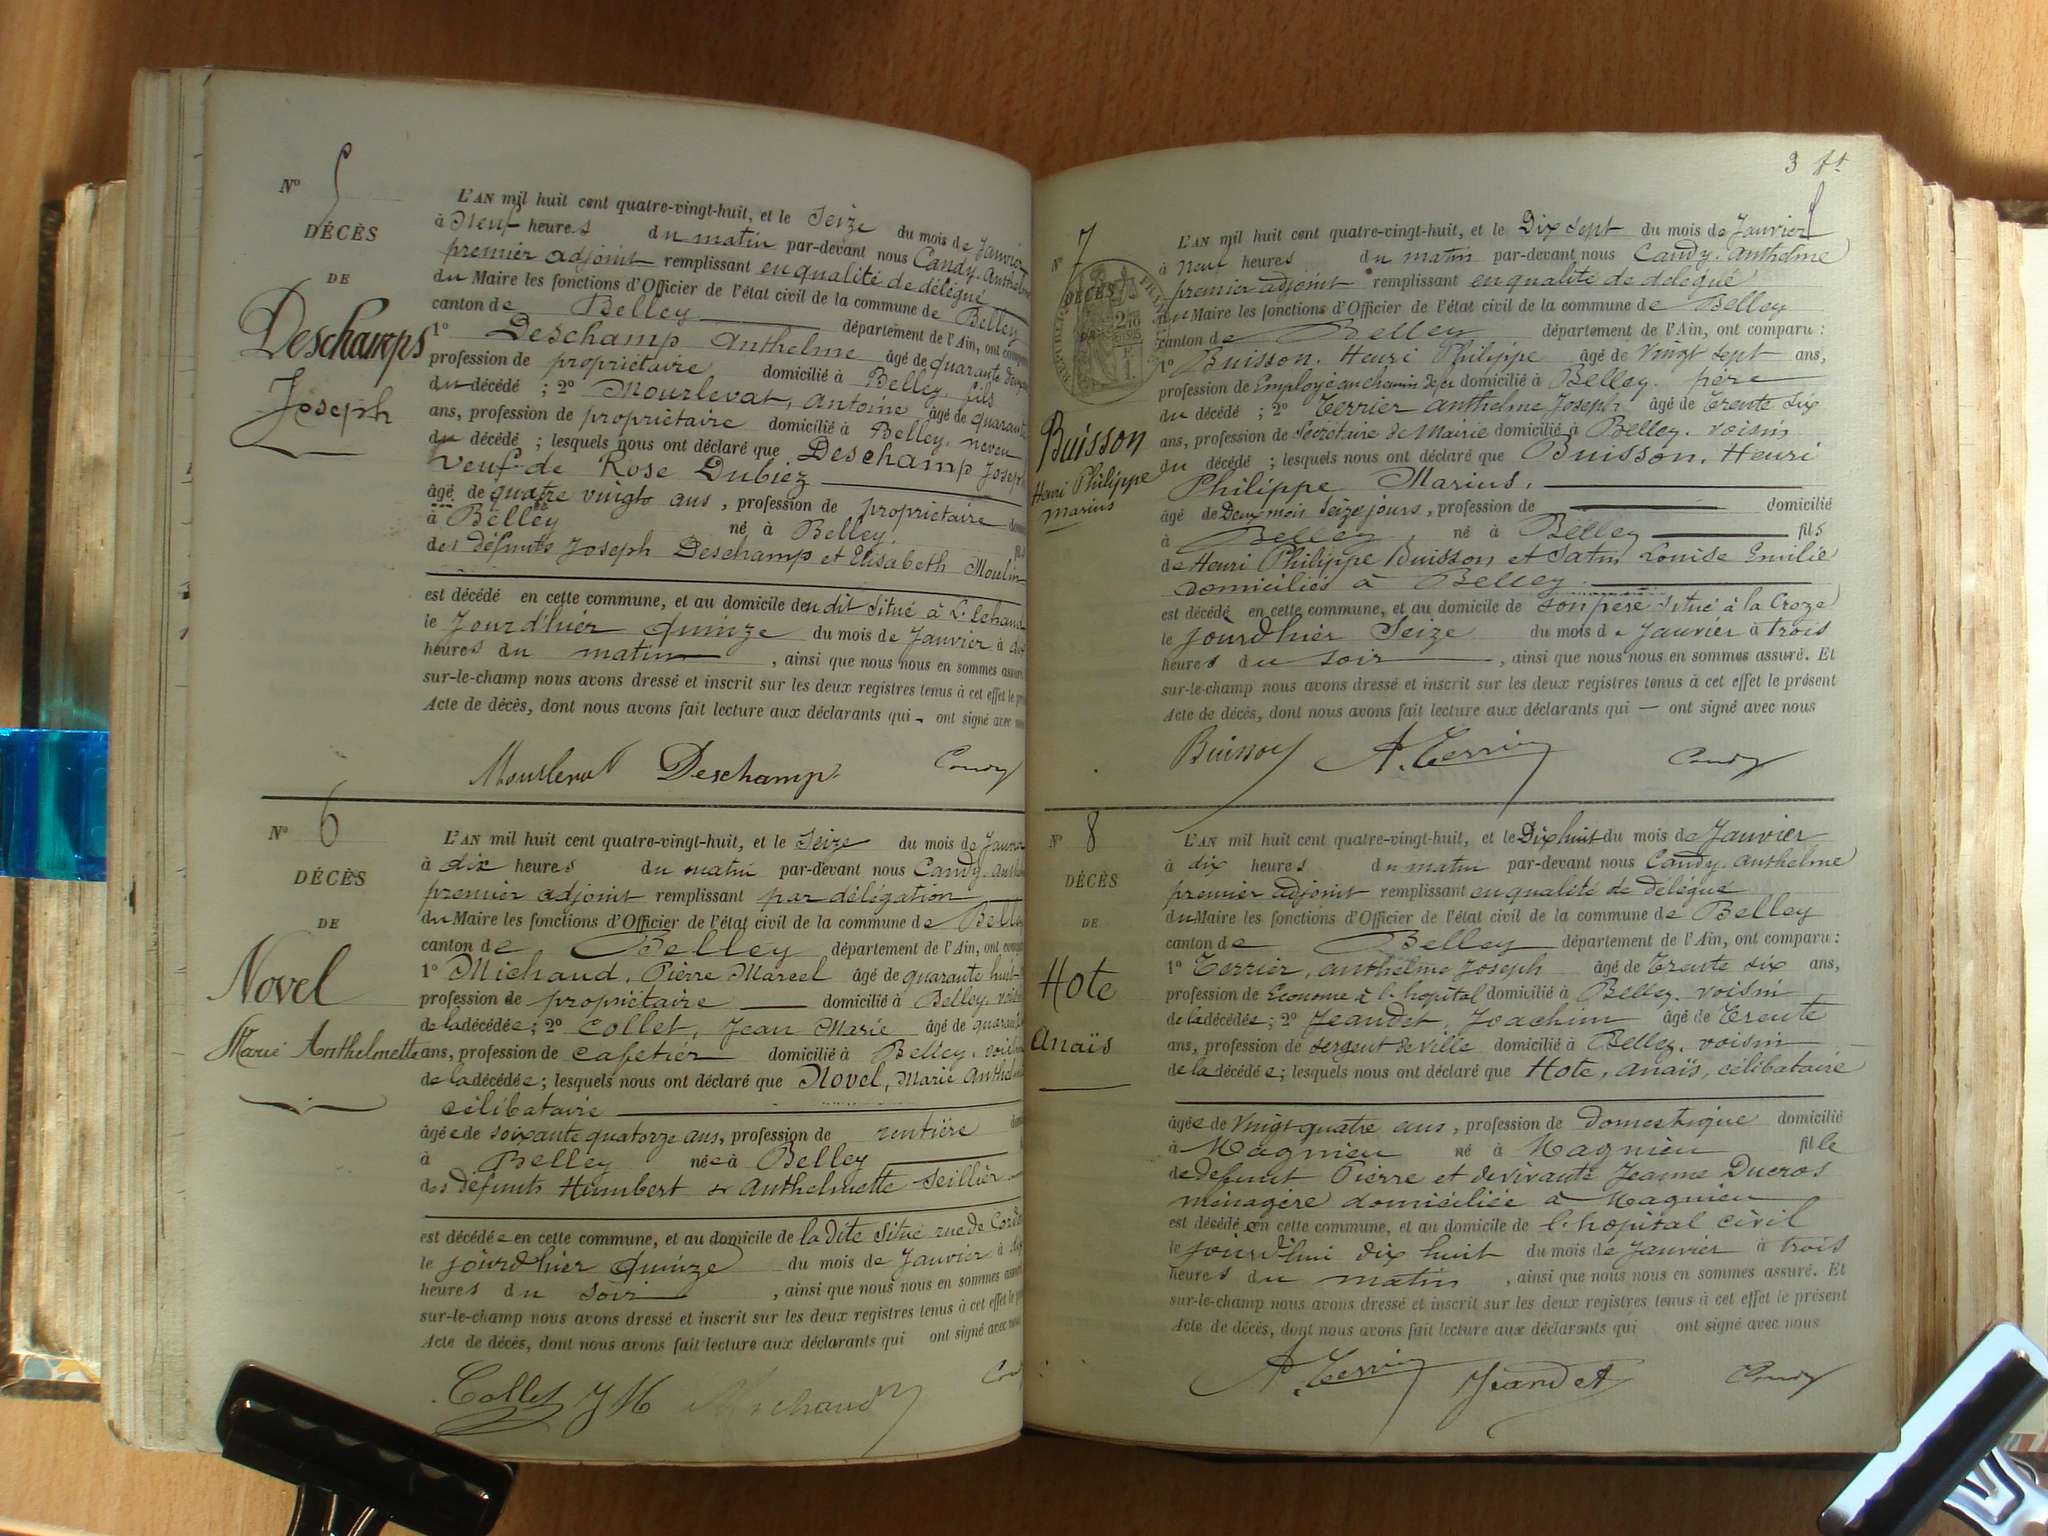 Nº 5
DÉCÈS
DE
Deschamps
Joseph
L'AN mil huit cent quatre-vingt-huit, et le Seize du mois de Janvier
à Neuf heures du matin par-devant nous Candy, Anthelme
premier adjoint remplissant en qualité de délégué
du Maire les fonctions d'Officier de l'état civil de la commune de Belley
canton de Belley département de l'Ain, ont
1º Deschamp Anthelme âgé de quarante
profession de propriétaire domicilié à Belley, fils
du décédé ; 2º Mourlevat, Antoine âgé de quarante
ans, profession de propriétaire domicilié à Belley, neveu
du décédé ; lesquels nous ont déclaré que Deschamp Joseph
veuf de Rose Dubiez
âgé de quatre vingts ans, profession de propriétaire
à Belley né à Belley.
des défunts Joseph Deschamp et Elisabeth Moulin
est décédé en cette commune, et au domicile du dit situé à
le jourd'hier quinze du mois de Janvier à
heures du matin, ainsi que nous nous en sommes assuré.
sur-le-champ nous avons dressé et inscrit sur les deux registres tenus à cet effet le
Acte de décès, dont nous avons fait lecture aux déclarants qui - ont signé avec
Mourlevat Deschamp Candy
Nº 6
DÉCÈS
DE
Novel
Marie Anthelmette
L'AN mil huit cent quatre-vingt-huit, et le Seize du mois de Janvier
à dix heures du matin par-devant nous Candy,
premier adjoint remplissant par délégation
du Maire les fonctions d'Officier de l'état civil de la commune de Belley
canton de Belley département de l'Ain, ont
1º Michaud, Pierre Marcel âgé de quarante huit
profession de propriétaire domicilié à Belley, voisin
de la décédée ; 2º Collet, Jean Marie âgé de
ans, profession de cafetier domicilié à Belley, voisin
de la décédée ; lesquels nous ont déclaré que Novel, Marie
célibataire
âgée de soixante quatorze ans, profession de rentière
à Belley née à Belley
des défunts Humbert et Anthelmette Seillier
est décédée en cette commune, et au domicile de la dite situé rue de
le jourd'hier quinze du mois de Janvier à
heures du soir, ainsi que nous nous en sommes
sur-le-champ nous avons dressé et inscrit sur les deux registres tenus à cet effet le
Acte de décès, dont nous avons fait lecture aux déclarants qui ont signé avec nous
Collet J M Michaud
3 ft
Nº 7
DÉCÈS
DE
Buisson
Henri Philippe
Marius
L'AN mil huit cent quatre-vingt-huit, et le Dix sept du mois de Janvier
à neuf heures du matin par-devant nous Candy, Anthelme
premier adjoint remplissant en qualité de délégué
du Maire les fonctions d'Officier de l'état civil de la commune de Belley
canton de Belley département de l'Ain, ont comparu :
1º Buisson, Henri Philippe âgé de vingt sept ans,
profession de Employé au chemin de fer domicilié à Belley, père
du décédé ; 2º Terrier Anthelme Joseph âgé de trente six
ans, profession de Secrétaire de Mairie domicilié à Belley, voisin
du décédé ; lesquels nous ont déclaré que Buisson, Henri
Philippe Marius,
âgé de Deux mois seize jours, profession de domicilié
à Belley né à Belley fils
de Henri Philippe Buisson et Satin Louise Emilie
domiciliés à Belley.
est décédé en cette commune, et au domicile de son père situé à la Croze
le jourd'hier Seize du mois de Janvier à trois
heures du soir, ainsi que nous nous en sommes assuré. Et
sur-le-champ nous avons dressé et inscrit sur les deux registres tenus à cet effet le présent
Acte de décès, dont nous avons fait lecture aux déclarants qui — ont signé avec nous
Buisson A. Terrier Candy
Nº 8
DÉCÈS
DE
Hote
Anaïs
L'AN mil huit cent quatre-vingt-huit, et le Dix huit du mois de Janvier
à dix heures du matin par-devant nous Candy, Anthelme
premier adjoint remplissant en qualité de délégué
du Maire les fonctions d'Officier de l'état civil de la commune de Belley
canton de Belley département de l'Ain, ont comparu :
1º Terrier, Anthelme Joseph âgé de trente six ans,
profession de Econome à l'hopital domicilié à Belley, voisin
de la décédée ; 2º Jeandet, Joachim âgé de trente
ans, profession de sergent de ville domicilié à Belley, voisin
de la décédée ; lesquels nous ont déclaré que Hote, Anaïs, célibataire
âgée de vingt quatre ans, profession de domestique domicilié
à Magnieu né à Magnieu fille
de defunt Pierre et de vivante Jeanne Ducros
ménagère domiciliée à Magnieu
est décédé en cette commune, et au domicile de l'hopital civil
le jourd'hui dix huit du mois de Janvier à trois
heures du matin, ainsi que nous nous en sommes assuré. Et
sur-le-champ nous avons dressé et inscrit sur les deux registres tenus à cet effet le présent
Acte de décès, dont nous avons fait lecture aux déclarants qui ont signé avec nous
A. Terrier Jeandet Candy